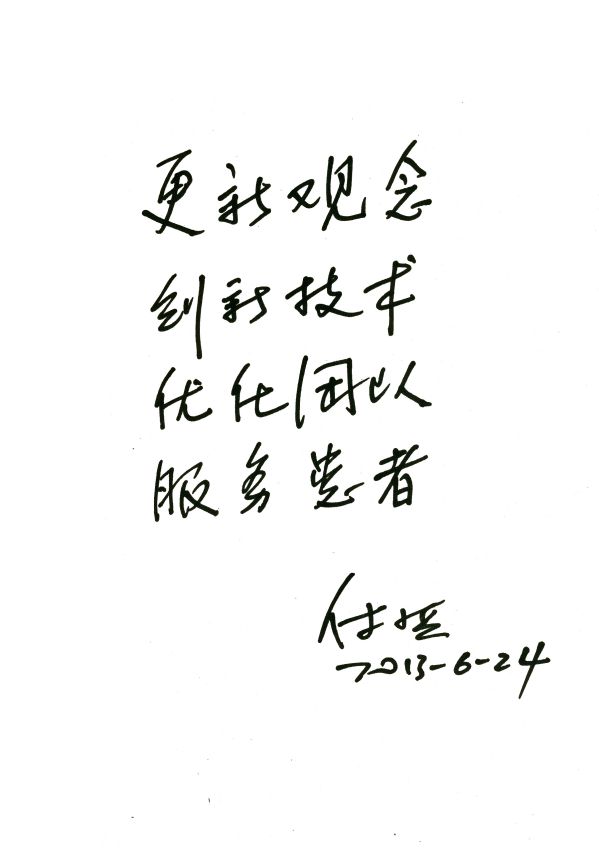 更新观念
创新技术
优化团队
服务患者
付
2013-6-24